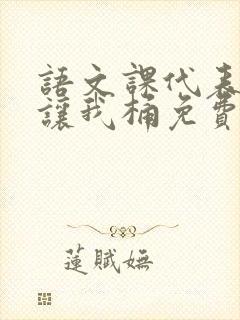 語文課代表
讓我桶免費
蓮賦嫵